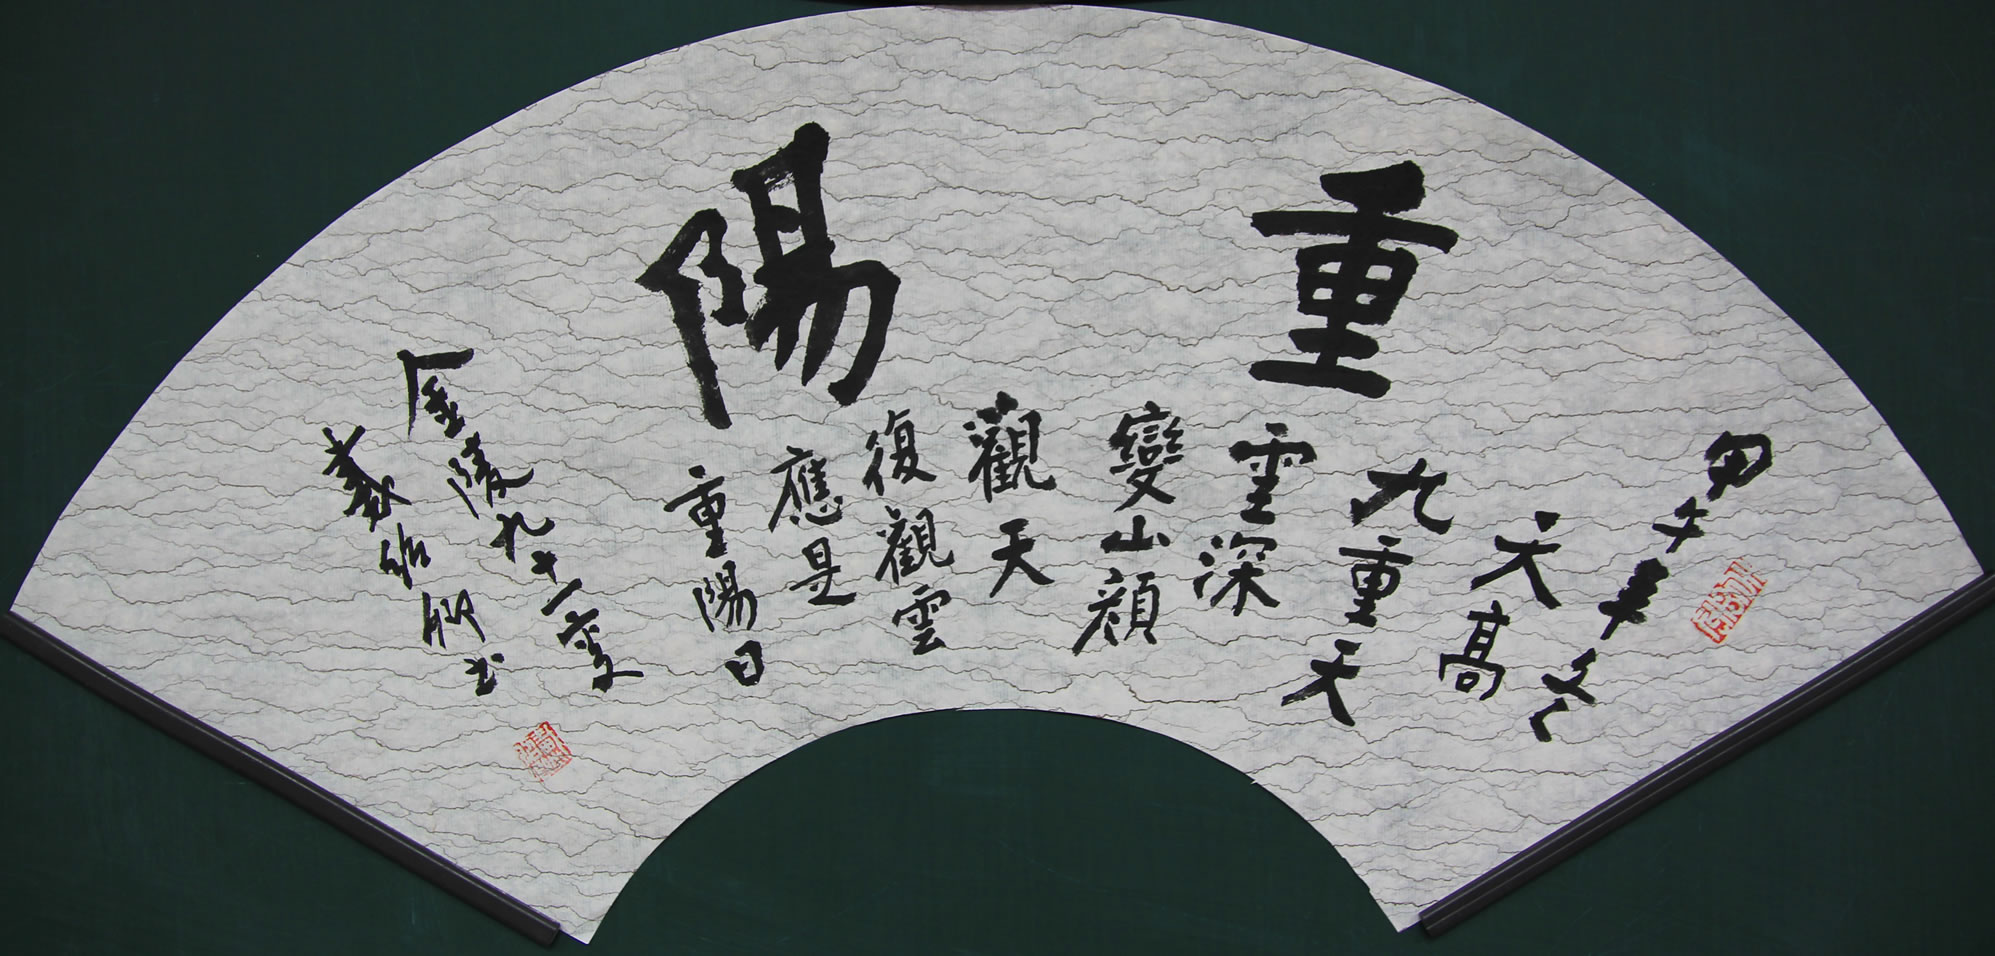 重陽
甲午年冬
天高
九重天
雲深
變山顏
觀天
復觀雲
應是
重陽日
金陵九十一叟
書